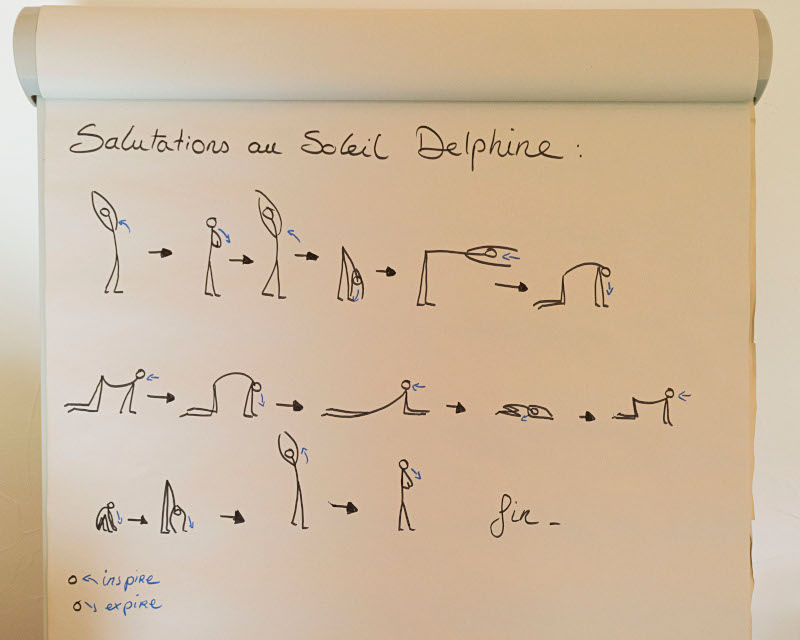 Salutations au Soleil Delphine :
fin -
inspire
expire